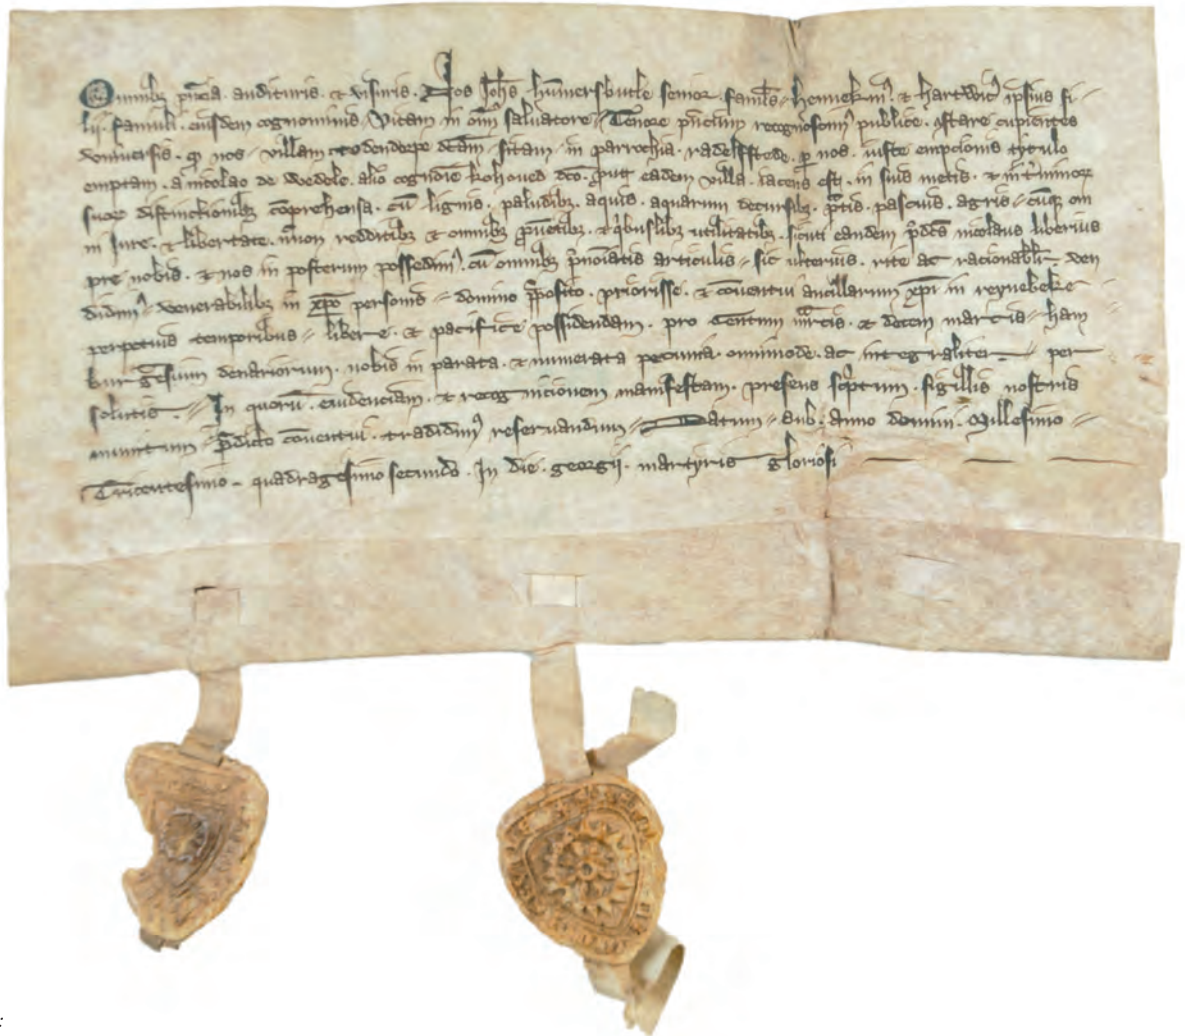 Omnibȝ p̄ncia audituris · et visuris · Nos Joh̄s hūmersbutle senior famłs · hennekinꝰ · et hartwicꝰ ipsius fi
lii · famuli · eiusdem cognominis · Vitam in om̄ salvatore · Tenore p̄ncium recognoscimꝰ publice · ꝯstare cupientes
vniuersis · ꝙ nos · villam todendorpe dc̄am · sitam · in parrochia · radelfstede · ꝑ nos · iuste empcionis tytulo
emptam · a nicolao de wedele · alio cognōie kohoued dc̄o · prout eadem villa · iacens est · in suis metis · et int̄minor
suor distinctionibȝ cōprehensa · cū lignis · paludibȝ · aquis · aquarum decursibȝ · p̄tis · pascuis · agris · cūqȝ om
ni Jure · et libertate · redditibȝ et omnibȝ ꝓuētibȝ · et qͥbuslibȝ utilitatibȝ · sicuti eandem p̄dc̄s nicolaus liberius
pre nobis · et nos in posterum possedimꝰ · cū omnibȝ p̄nōiatis articulis · sic ulterius · rite ac racionabilꝰ ven
didimꝰ · venerabilibȝ in xp̄o personis · domino p̄posito · priorisse · et cōuentui ancillarum xp̄i in reynebeke
perpetuis temporibus · libere · et pacifice possidendam · pro Centum mͬcis · et decem marcis · ham
burgēsium denariorum · nobis in parata · et numerata pecunia · omnimode · ac integraliter · per
solutis · In quorū · euidenciam · et recognicionem manifestam · presens sc̄ptum · sigillis nostris
munitum · p̄dicto cōuentui · tradidimꝰ reseruandum · Datum · sub · anno domini · Millesimo
Tricentesimo · quadragesimo secundo · In die · georgii · martyris gloriosi